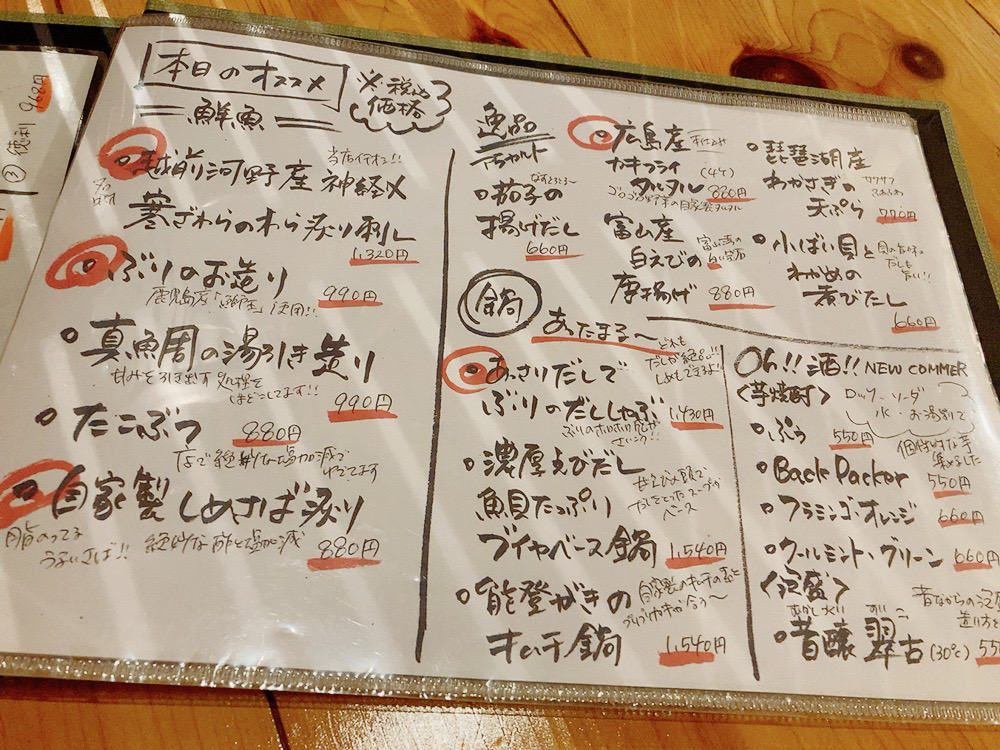 ③徳利 968円
本日のオススメ
※税込
価格
鮮魚
当店イチオシ!!
越前河野産 神経〆
寒ざわらのわら炙り刺し
1,320円
ぶりのお造り
990円
真魚周の湯引き造り
甘みを引き出す処理を
ほどこしてます!!
990円
たこぶつ
880円
店で絶妙な塩加減で
ゆでてます
自家製しめさば炙り
脂のってる
うまいさば!!
絶妙な酢と塩加減
880円
逸品
茄子の
揚げだし
660円
広島産
カキフライ
(4ヶ)
タルタル 880円
富山産
白えびの
唐揚げ 880円
琵琶湖産
わかさぎの
サクサク
ふわふわ
天ぷら 770円
小ばい貝と
わかめの
煮びたし
660円
鍋
あったまる〜
どれも
だしが絶品!!
しめもできるよ!!
あっさりだしで
ぶりのだししゃぶ 1,430円
濃厚えびだし
魚貝たっぷり
ブイヤベース鍋 1,540円
甘えびの頭で
だしをとったスープが
ベース
能登がきの
キムチ鍋 1,540円
自家製のキムチの素と
プリプリカキが合う〜
Oh!!酒!! NEW COMMER
〈芋焼酎〉
ロック・ソーダ
水・お湯割で
ぷう 550円
個性的な芋
集めました
Back Packer
550円
フラミンゴ・オレンジ
660円
クールミント・グリーン 660円
〈泡盛〉
昔醸 翠古 (30℃) 55
むかしづくり すいこ